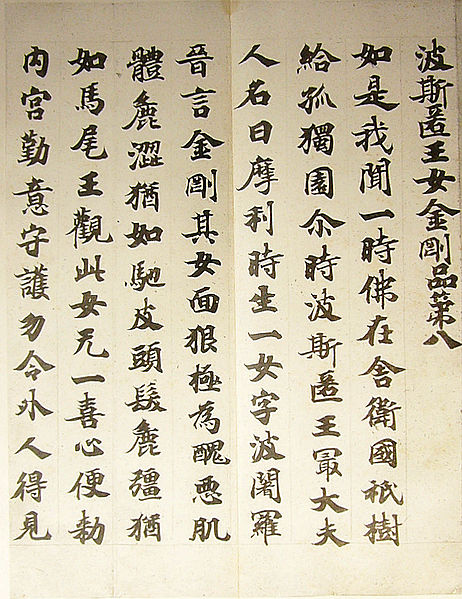 波斯匿王女金剛品苐八
如是我聞一時佛在舍衛國祇樹
給孤獨園尒時波斯匿王冣大夫
人名曰摩利時生一女字波闍羅
晉言金剛其女面狠極為醜惡肌
體麁澀猶如馳皮頭髮麁彊猶
如馬尾王觀此女无一喜心便勅
內宮勤意守護勿令外人得見